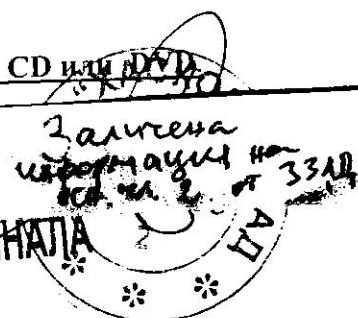 CD или DVD
Заличена
информация на
чл. 2 от ЗЗЛД
НАЛА
АД